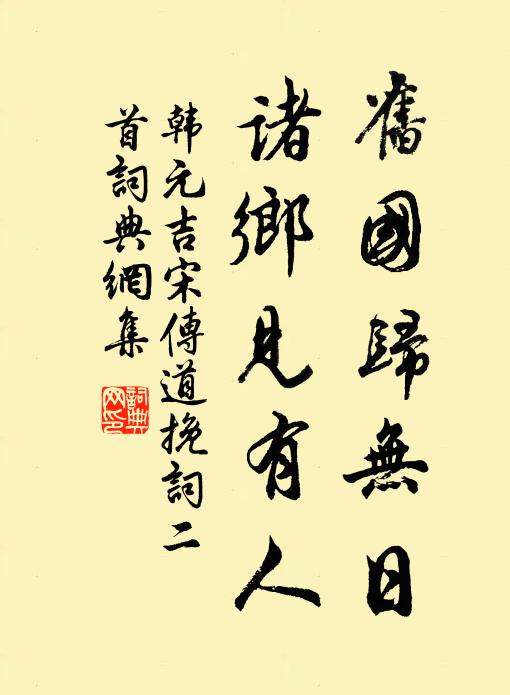 舊國歸無日
諸鄉見有人
韩元吉宋傳道挽詞二
首詞典網集
詞典
网印